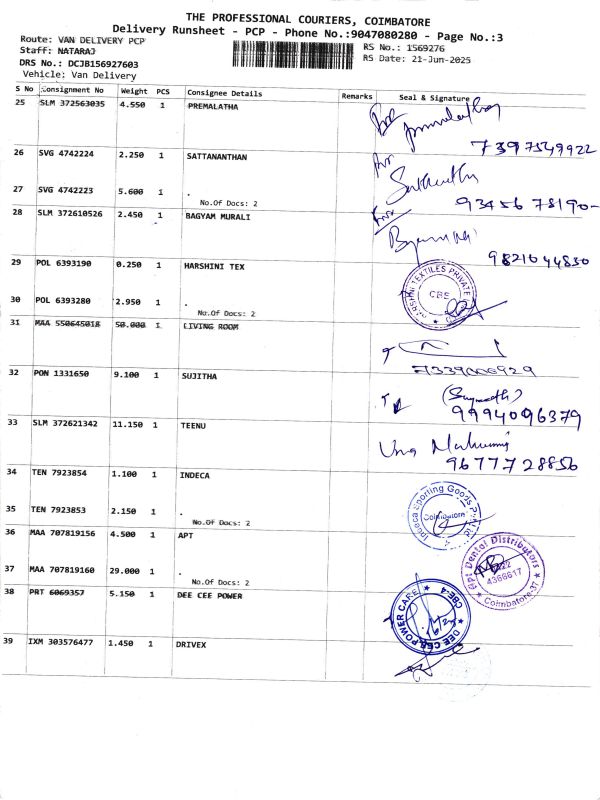 THE PROFESSIONAL COURIERS, COIMBATORE
Delivery Runsheet - PCP - Phone No.:9047080280 - Page No.:3
Route: VAN DELIVERY PCP
RS No.: 1569276
Staff: NATARAJ
RS Date: 21-Jun-2025
DRS No.: DCJB156927603
Vehicle: Van Delivery
S No Consignment No Weight PCS Consignee Details Remarks Seal & Signature
25 SLM 372563035 4.550 1 PREMALATHA
7397549922
26 SVG 4742224 2.250 1 SATTANANTHAN
27 SVG 4742223 5.600 1 .
No.Of Docs: 2
93456 78190
28 SLM 372610526 2.450 1 BAGYAM MURALI
9821044830
29 POL 6393190 0.250 1 HARSHINI TEX
CBE
30 POL 6393280 2.950 1 .
No.Of Docs: 2
31 MAA 550645018 50.000 1 LIVING ROOM
32 PON 1331650 9.100 1 SUJITHA
9994096379
33 SLM 372621342 11.150 1 TEENU
9677728856
34 TEN 7923854 1.100 1 INDECA
Indeca Sporting Goods
Coimbatore
35 TEN 7923853 2.150 1 .
No.Of Docs: 2
36 MAA 707819156 4.500 1 APT
Apt Dental Distributors
4366617
Coimbatore-37
37 MAA 707819160 29.000 1 .
No.Of Docs: 2
38 PRT 6069357 5.150 1 DEE CEE POWER
DEE CEE POWER CARE
CBE-4
39 IXM 303576477 1.450 1 DRIVEX